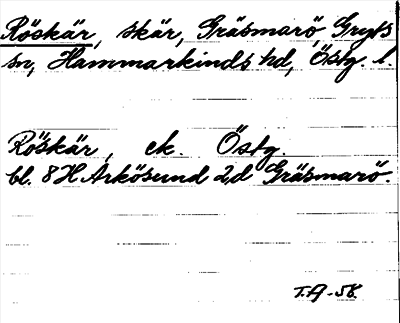 Röskär, skär, Gräsmarö, Gryts
sn, Hammarkinds hd, Östg. l.
Röskär, ek. Östg.
bl. 8H Arkösund 2d Gräsmarö.
T.A -58.